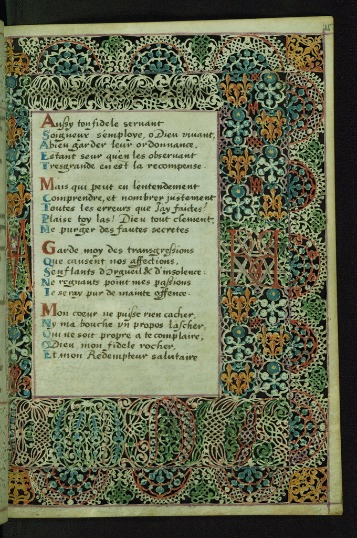 Aussy ton fidele servant
Soigneux s'employe, o Dieu vivant,
A bien garder leur ordonnance,
Estant seur qu'en les observant
Tresgrande en est la recompense.
Mais qui peut en l'entendement
Comprendre, et nombrer justement
Toutes les erreurs que j'ay faites?
Plaise toy las! Dieu tout clement,
Me purger des fautes secretes
Garde moy des transgressions
Que causent nos affections,
S'enflants d'orgueil & d'insolence:
Ne regnants point mes passions
Je seray pur de mainte offence.
Mon coeur ne puisse rien cacher,
Ny ma bouche un propos lascher,
Qui ne soit propre a te complaire,
O Dieu, mon fidele rocher,
Et mon Redempteur salutaire